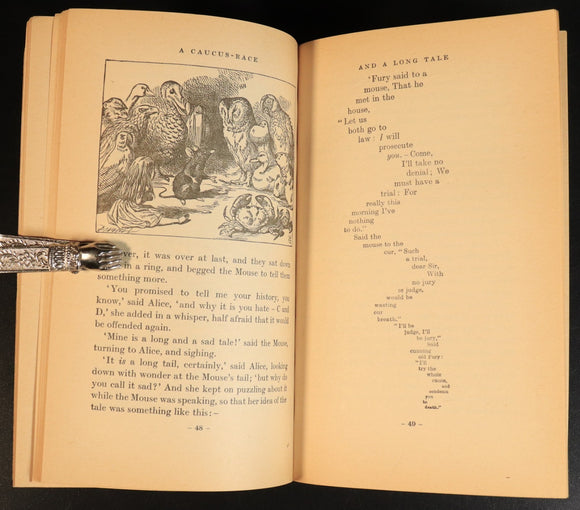 A CAUCUS-RACE
ver, it was over at last, and they sat down
in a ring, and begged the Mouse to tell them
something more.
‘You promised to tell me your history, you
know,’ said Alice, ‘and why it is you hate – C and
D,’ she added in a whisper, half afraid that it would
be offended again.
‘Mine is a long and a sad tale!’ said the Mouse,
turning to Alice, and sighing.
‘It is a long tail, certainly,’ said Alice, looking
down with wonder at the Mouse’s tail; ‘but why do
you call it sad?’ And she kept on puzzling about it
while the Mouse was speaking, so that her idea of the
tale was something like this: –
– 48 –
AND A LONG TALE
‘Fury said to a
mouse, That he
met in the
house,
“Let us
both go to
law: I will
prosecute
you. – Come,
I’ll take no
denial; We
must have a
trial: For
really this
morning I’ve
nothing
to do.”
Said the
mouse to the
cur, “Such
a trial,
dear Sir,
With
no jury
or judge,
would be
wasting
our
breath.”
“I’ll be
judge, I’ll
be jury,”
Said
cunning
old Fury:
“I’ll
try the
whole
cause,
and
condemn
you
to
death.”
– 49 –